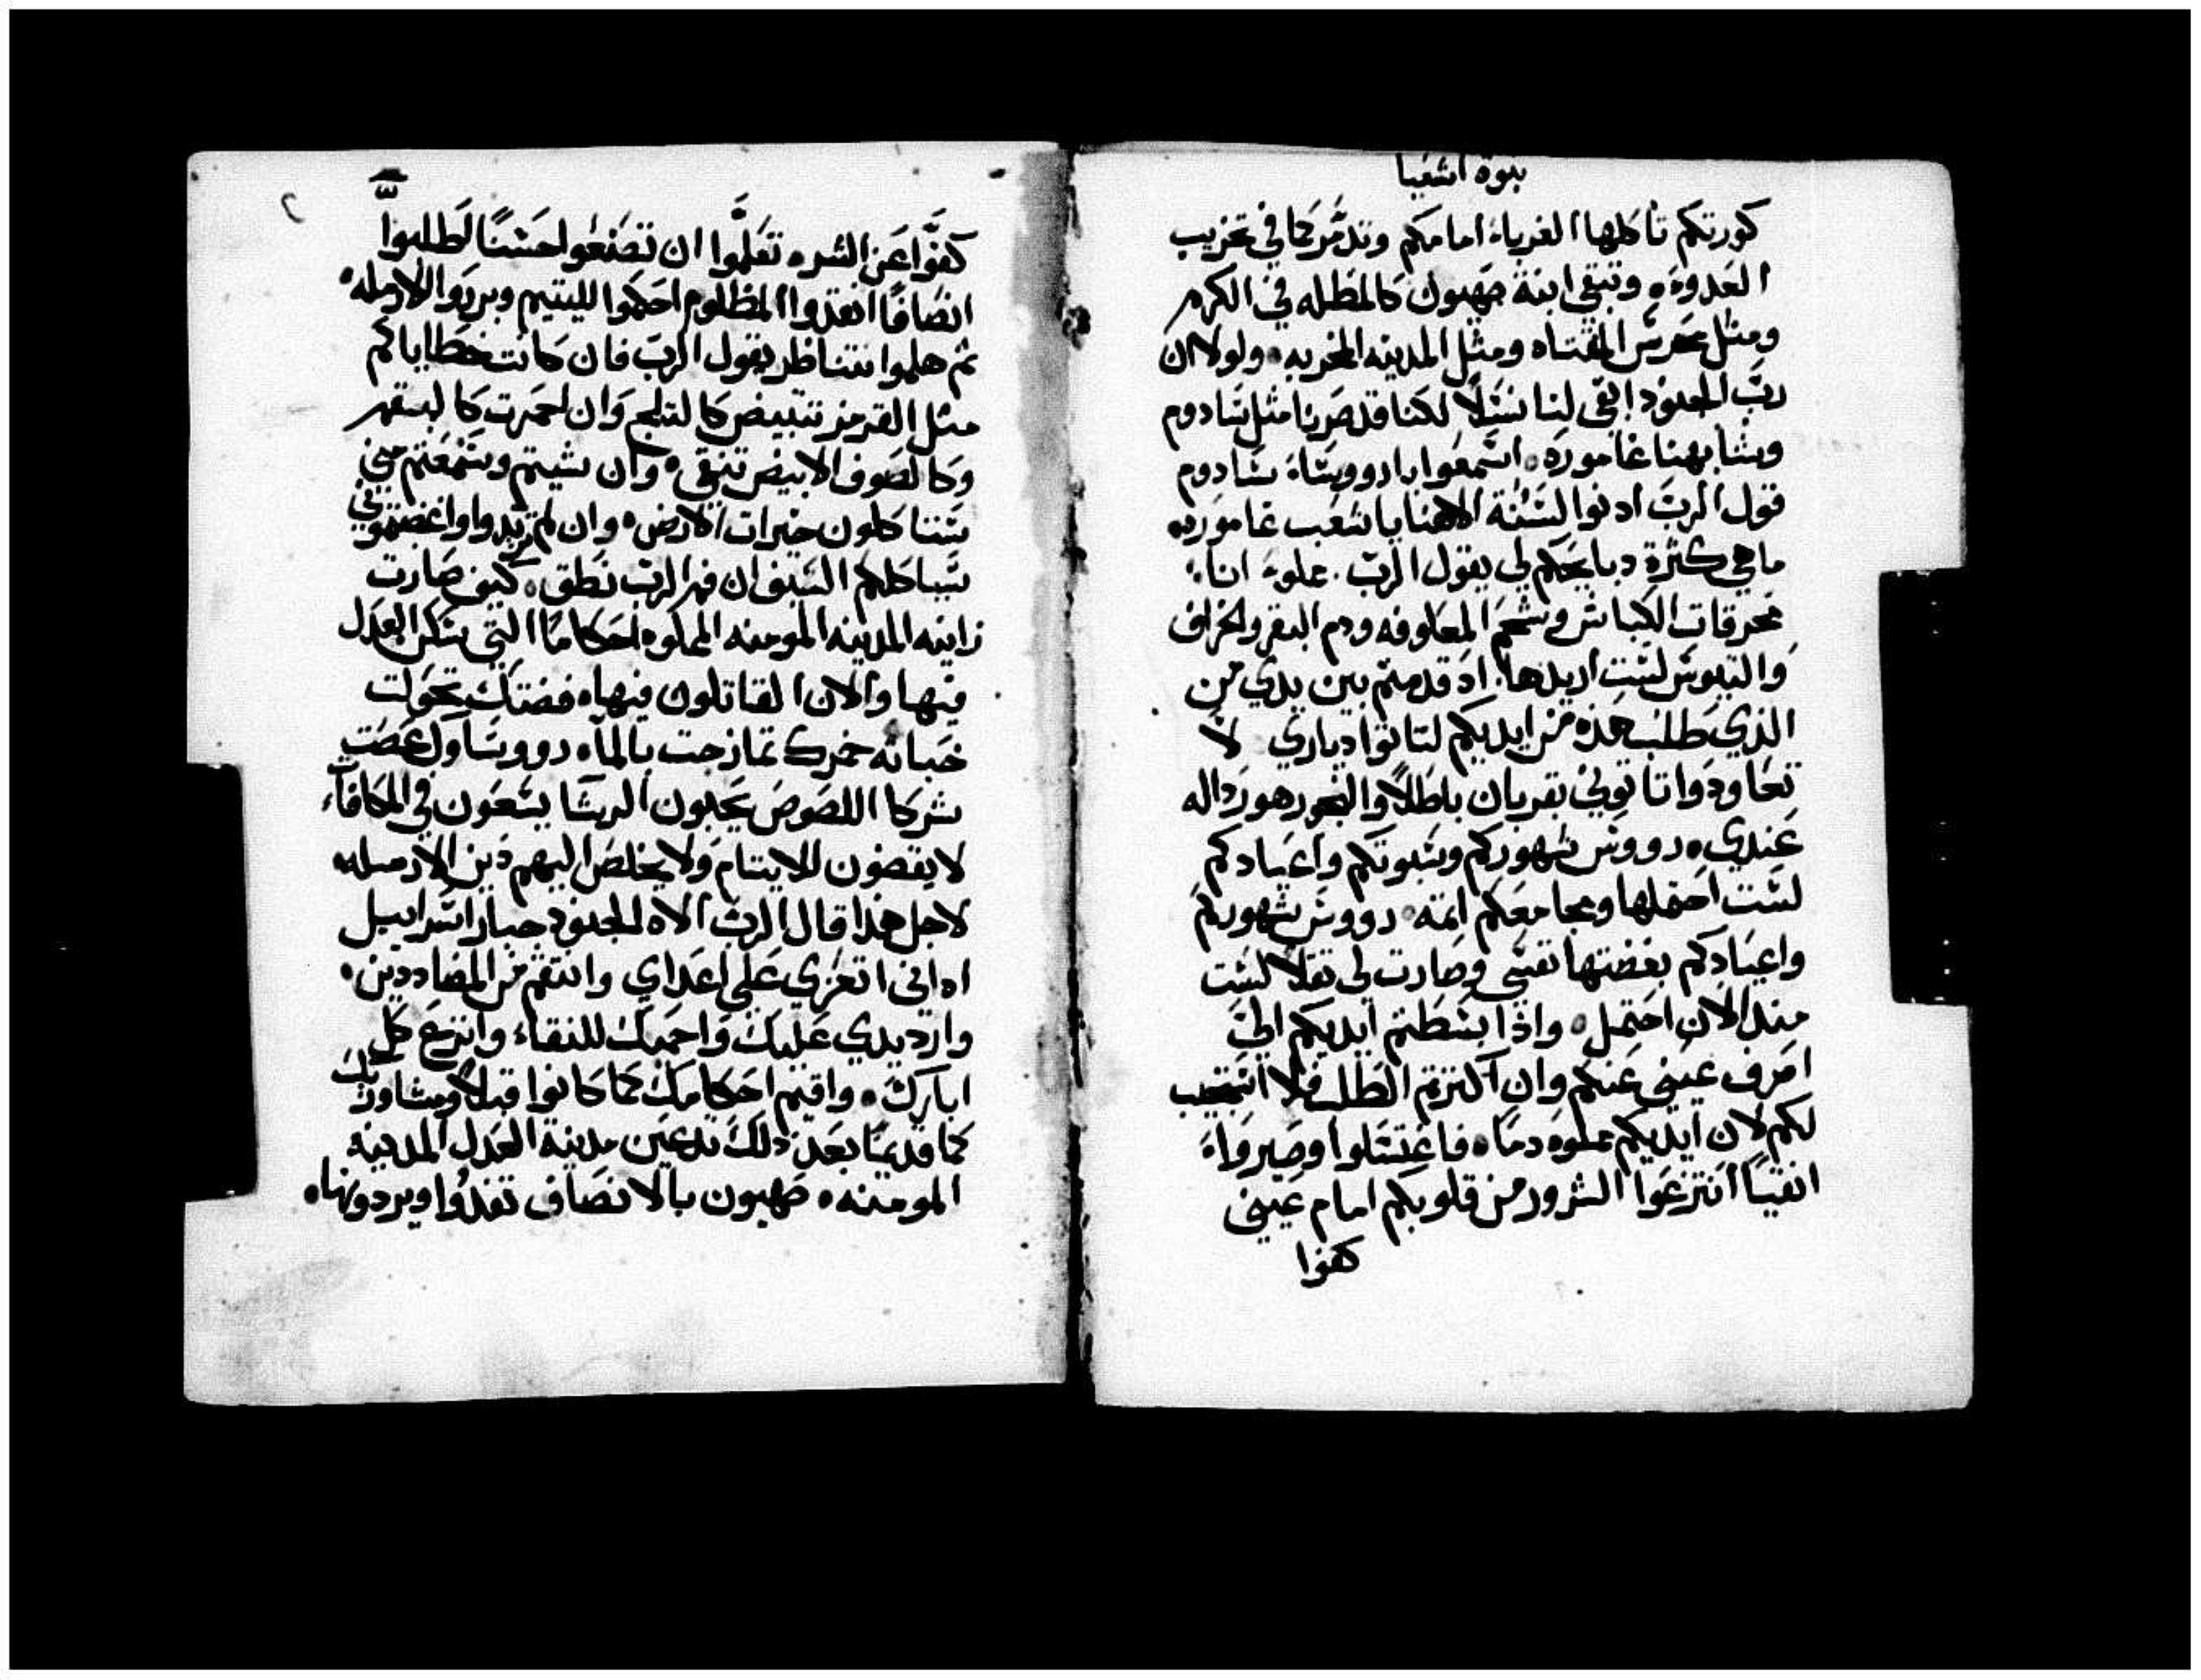 نبوة اشعيا
كورتكم تاكلها الغرباء امامكم وتدمر كما في تخريب
العدوه وتبقي ابنة صهيون كالمظله في الكرم
ومثل محرس المقتاه ومثل المدينه المخربه ولولا ان
ربّ الجنود ابقى لنا نسلًا لكنا قد صرنا مثل سادوم
وشابهنا غاموره اسمعوا يا رووساء سادوم
قول الرب ادنوا لسنة الاهنا يا شعب غاموره
ما هي كثرة دبايحكم لي يقول الربّ مملوء انا
محرقات الكباش وشحم المعلوفه ودم البقر والخراف
والتيوس لست اريدها اد قدمتم بين يدي من
الذي طلب هذه من ايديكم لتاتوا دياري لا
تعاودوا تاتوني بقربان باطلًا والبخور هو رداله
عندي رووس شهوركم وسبوتكم واعيادكم
لست احتملها ومجامعكم اتمه رووس شهوركم
واعيادكم بغضتها نفسي وصارت لي ثقلًا لست
مند الان احتمل واذا بسطتم ايديكم الي
اصرف عيني عنكم وان اكترتم الطلب فلا استجيب
لكم لان ايديكم مملوه دماه فاغتسلوا وصيرواء
انقيًا انتزعوا الشرور من قلوبكم امام عيني
كفوا
كفوا عن الشر تعلموا ان تصنعوا حسنًا اطلبوا
انصافًا انقدوا المظلوم احكموا لليتيم وبرروا الارمله
ثم هلموا نتناظر يقول الربّ فان كانت خطاياكم
مثل القرمز تبيض كالتلج وان احمرت كالبقم
وكالصوف الابيض تنقي وان شيتم وسمعتم مني
ستاكلون خيرات الارض وان لم تريدوا واغضبتموني
سياكلكم السيف ان فم الرب نطق كيف صارت
زانيه المدينه المومنه المملوه احكامًا التي سكن العدل
فيها والان القاتلون فيها فضتك تحولت
خباته خمرك تمازجت بالماء رووساوك عصت
شركا اللصوص يحبون الرشا يسعون في المكافاء
لا يقضون للايتام ولا يخلص اليهم دين الارمله
لاجل هذا قال الربّ الاه الجنود جبار اسراييل
اه اني اتعزي على اعداي وانتقم من المضاددين
وارد يدي عليك واحميك للنقاء وانزع كل
ابارك واقيم احكامك كما كانوا قبلًا ومشاوريك
كما قديمًا بعد ذلك تدعين مدينة العدل المدينه
المومنه صهيون بالانصاف تفدوا ويردونها